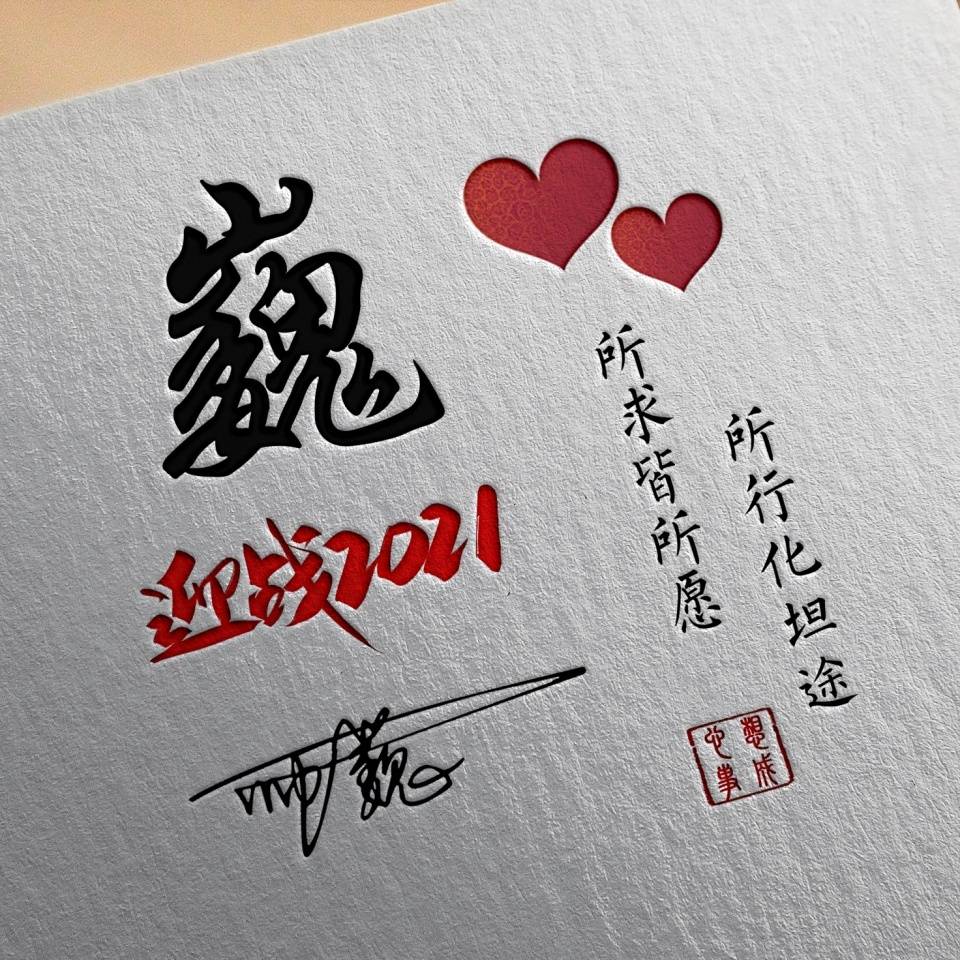 巍
迎战2021
所求皆所愿
所行化坦途
心想
事成